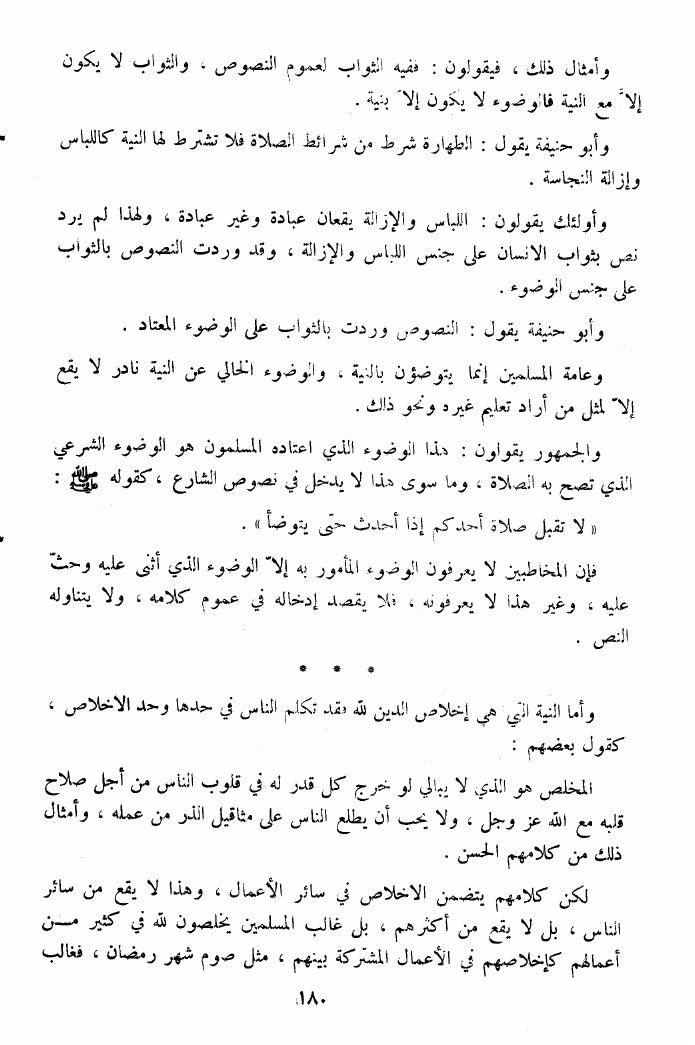 وأمثال ذلك ، فيقولون : ففيه الثواب لعموم النصوص ، والثواب لا يكون
إلاَّ مع النية فالوضوء لا يكون إلاَّ بنية .
وأبو حنيفة يقول : الطهارة شرط من شرائط الصلاة فلا تشترط لها النية كاللباس
وإزالة النجاسة .
وأولئك يقولون : اللباس والإزالة يقعان عبادة وغير عبادة ، ولهذا لم يرد
نص بثواب الانسان على جنس اللباس والإزالة ، وقد وردت النصوص بالثواب
على جنس الوضوء .
وأبو حنيفة يقول : النصوص وردت بالثواب على الوضوء المعتاد .
وعامة المسلمين إنما يتوضؤن بالنية ، والوضوء الخالي عن النية نادر لا يقع
إلاّ لمثل من أراد تعليم غيره ونحو ذلك .
والجمهور يقولون : هذا الوضوء الذي اعتاده المسلمون هو الوضوء الشرعي
الذي تصح به الصلاة ، وما سوى هذا لا يدخل في نصوص الشارع ، كقوله ﷺ :
« لا تقبل صلاة أحدكم إذا أحدث حتى يتوضأ » .
فإن المخاطبين لا يعرفون الوضوء المأمور به إلاّ الوضوء الذي أثنى عليه وحثّ
عليه ، وغير هذا لا يعرفونه ، فلا يقصد إدخاله في عموم كلامه ، ولا يتناوله
النص .
* * *
وأما النية التي هي إخلاص الدين لله فقد تكلم الناس في حدها وحد الاخلاص ،
كقول بعضهم :
المخلص هو الذي لا يبالي لو خرج كل قدر له في قلوب الناس من أجل صلاح
قلبه مع الله عز وجل ، ولا يحب أن يطلع الناس على مثاقيل الذر من عمله ، وأمثال
ذلك من كلامهم الحسن .
لكن كلامهم يتضمن الاخلاص في سائر الأعمال ، وهذا لا يقع من سائر
الناس ، بل لا يقع من أكثرهم ، بل غالب المسلمين يخلصون لله في كثير مــن
أعمالهم كإخلاصهم في الأعمال المشتركة بينهم ، مثل صوم شهر رمضان ، فغالب
١٨٠